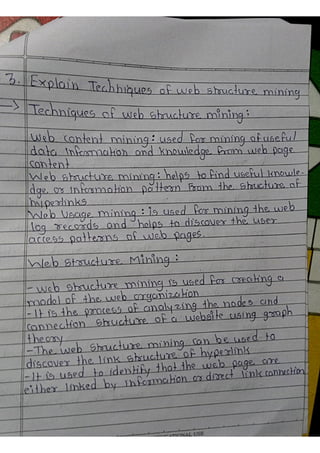 3. Explain Techniques of web structure mining
→ Techniques of web structure mining:
Web content mining: used for mining of useful
data information and knowledge from web page
content
Web structure mining: helps to find useful knowle-
dge or information pattern from the structure of
hyperlinks
Web Usage mining: is used for mining the web
log records and helps to discover the user
access patterns of web pages.
Web Structure Mining:
- web structure mining is used for creating a
model of the web organization
- It is the process of analyzing the nodes and
connection structure of a website using graph
theory
- The web structure mining can be used to
discover the link structure of hyperlink
- It is used to identify that the web page are
either linked by information or direct link connection